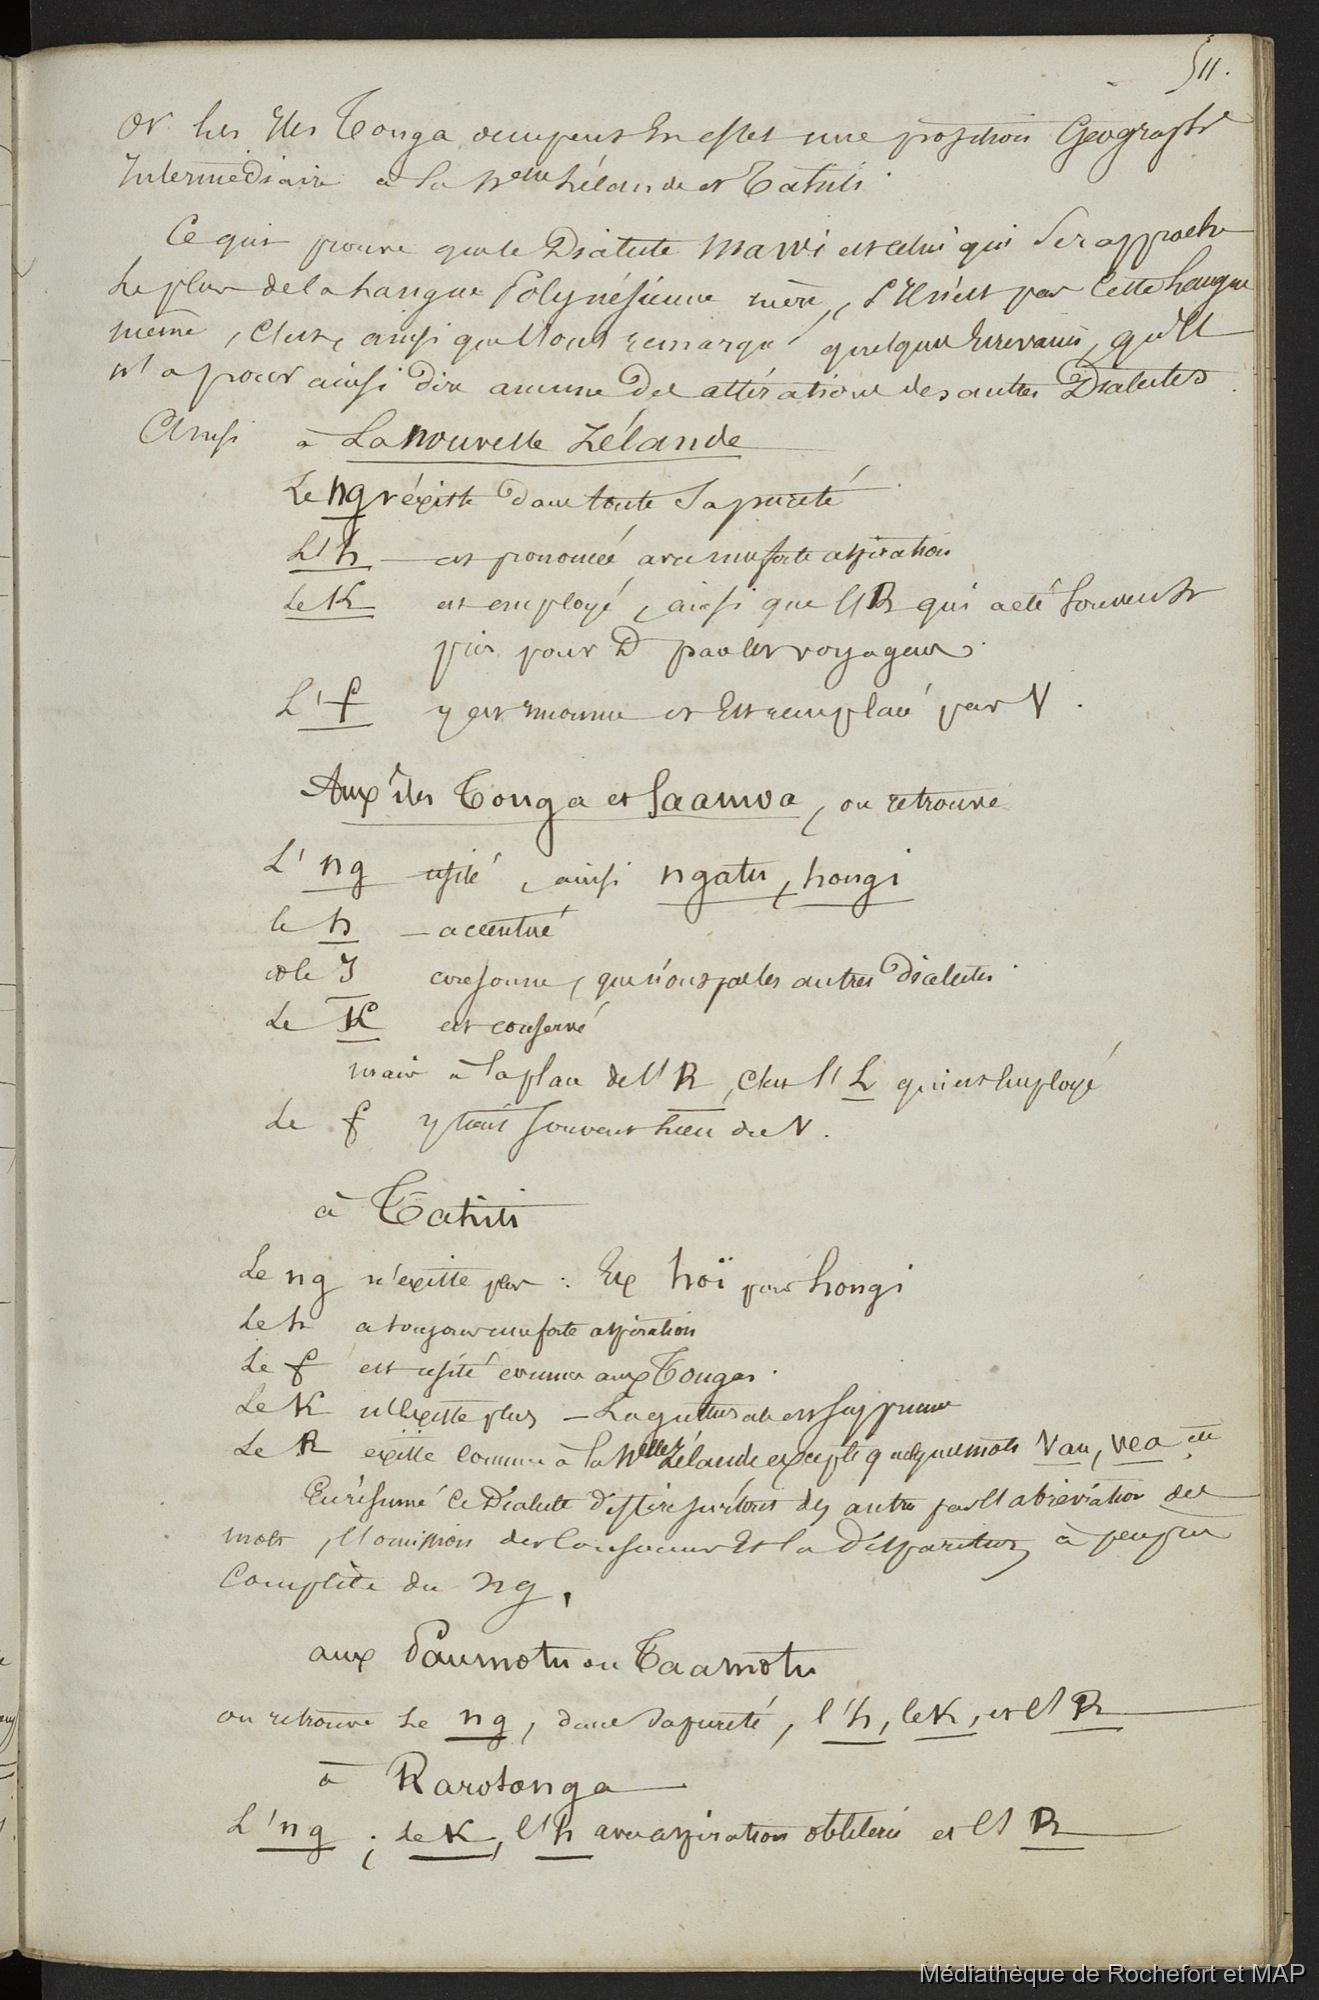 511.
Or les Iles Tonga, occupent En effet une position Géographe
Intermediaire à la Nelle Zélande et Tahiti.
Ce qui prouve que le Dialecte Maori est celui qui Se rapproche
Le plus de la Langue Polynésienne mère, S'Il n'est pas Cette Langue
meme, C'est, ainsi que l'ont remarqué quelques Ecrivains, qu'Il
n'a pour ainsi dire aucune des altérations des autres Dialectes
Ainsi à La Nouvelle Zélande
Le ng existe dans toute Sa pureté
L'h — est prononcée avec une forte aspiration
Le K est employé, ainsi que l'R qui a été Souvent
pris pour D par les voyageurs.
L'f y est inconnue et Est remplacé par V.
Aux Iles Tonga et Saamoa, on retrouve
L'ng usité, ainsi ngatu, hongi
le h — accentué
et le J consonne, que n'ont pas les autres Dialectes.
Le K est conservé
mais à la place de l'R, C'est l'L qui est Employé
Le f y tient Souvent lieu du V.
à Tahiti
Le ng n'existe plus : Ex hoï pour hongi
Le h a toujours une forte aspiration
Le f est usité comme aux Tongas.
Le K n'Existe plus — La gutturale est Supprimée
Le R existe Comme à la Nelle Zélande excepté quelques mots Vau, vea etc
En résumé Ce Dialecte diffère surtout des autres par l'abréviation des
mots, l'omission des Consonnes Et la Disparition à peu près
Complète du ng.
aux Paumotu ou Taamotu
on retrouve Le ng, dans Sa pureté, l'h, le K, et l'R
à Rarotonga
L'ng ; Le K, l'h avec aspiration oblitérée et l'R
Médiathèque de Rochefort et MAP